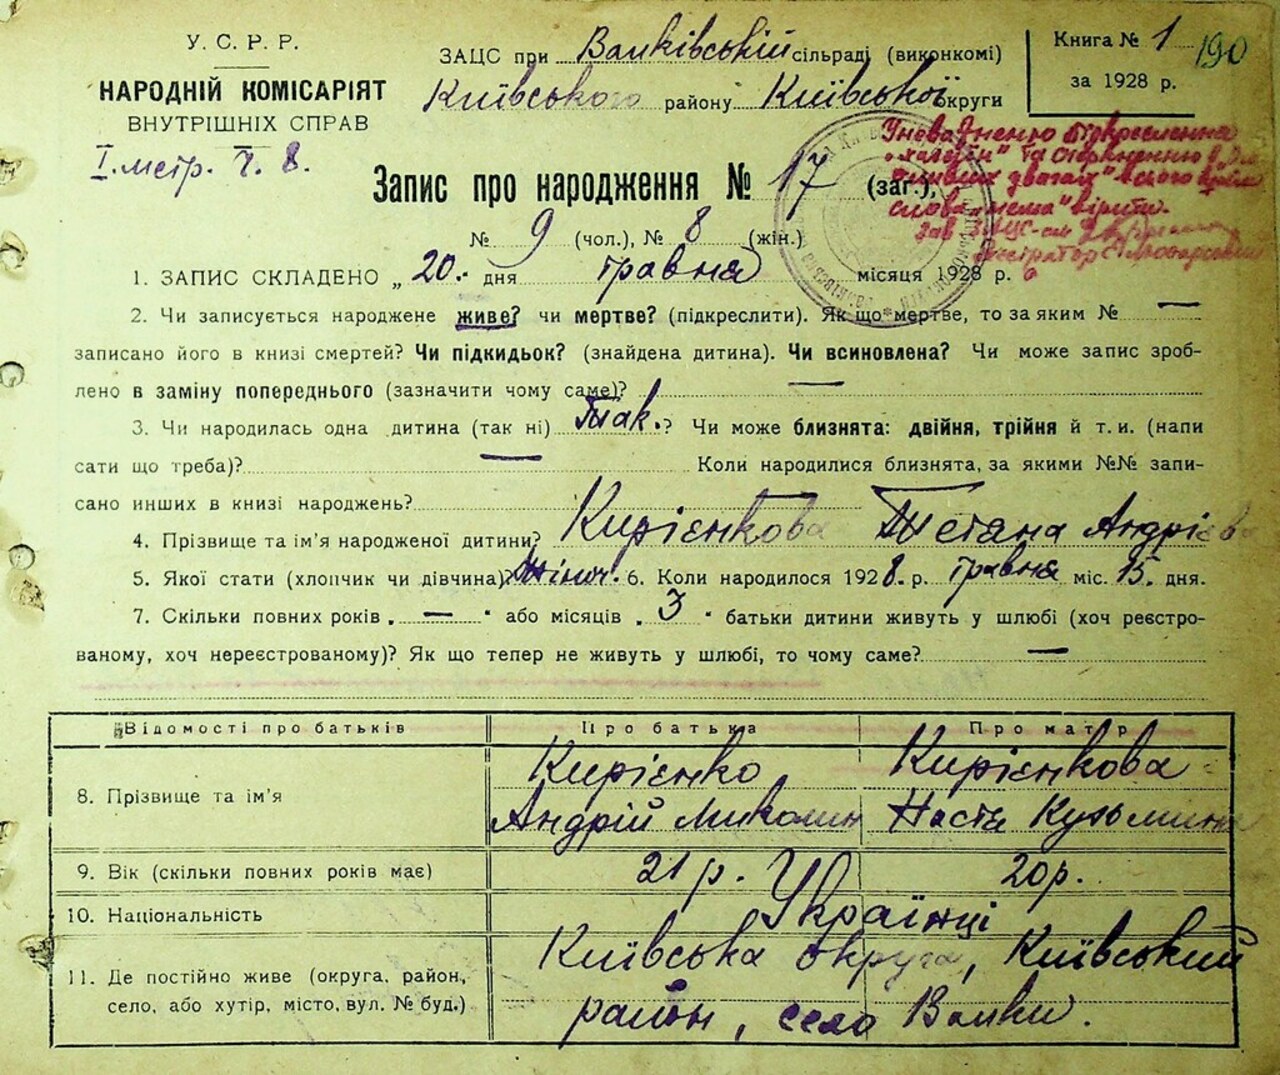 У. С. Р. Р.
НАРОДНІЙ КОМІСАРІЯТ
ВНУТРІШНІХ СПРАВ
I. метр. Ч. 8.
ЗАЦС при Валківській сільраді (виконкомі)
Київського району Київської округи
Книга № 1
за 1928 р.
190
слова „нема" вірити.
Запис про народження № 17 (заг.),
№ 9 (чол.), № 8 (жін.)
1. ЗАПИС СКЛАДЕНО „ 20.- дня травня місяця 1928 р.
2. Чи записується народжене живе? чи мертве? (підкреслити). Як що мертве, то за яким № —
записано його в книзі смертей? Чи підкидьок? (знайдена дитина). Чи всиновлена? Чи може запис зроб-
лено в заміну попереднього (зазначити чому саме)? —
3. Чи народилась одна дитина (так ні) Так.? Чи може близнята: двійня, трійня й т. и. (напи
сати що треба)? — Коли народилися близнята, за якими №№ запи-
сано инших в книзі народжень?
4. Прізвище та ім'я народженої дитини? Кирієнкова Тетяна Андрієва
5. Якої стати (хлопчик чи дівчина)? Жіноч. 6. Коли народилося 1928 р. травня міс. 15. дня.
7. Скільки повних років „ — " або місяців „ 3 " батьки дитини живуть у шлюбі (хоч реєстро-
ваному, хоч нереєстрованому)? Як що тепер не живуть у шлюбі, то чому саме? —
Відомості про батьків Про батька Про матір
8. Прізвище та ім'я Кирієнко Андрій Миколин Кирієнкова Настя Кузьмина
9. Вік (скільки повних років має) 21 р. 20 р.
10. Національність Українці
11. Де постійно живе (округа, район,
село, або хутір, місто, вул. № буд.)
Київська округа, Київський
район, село Валки.